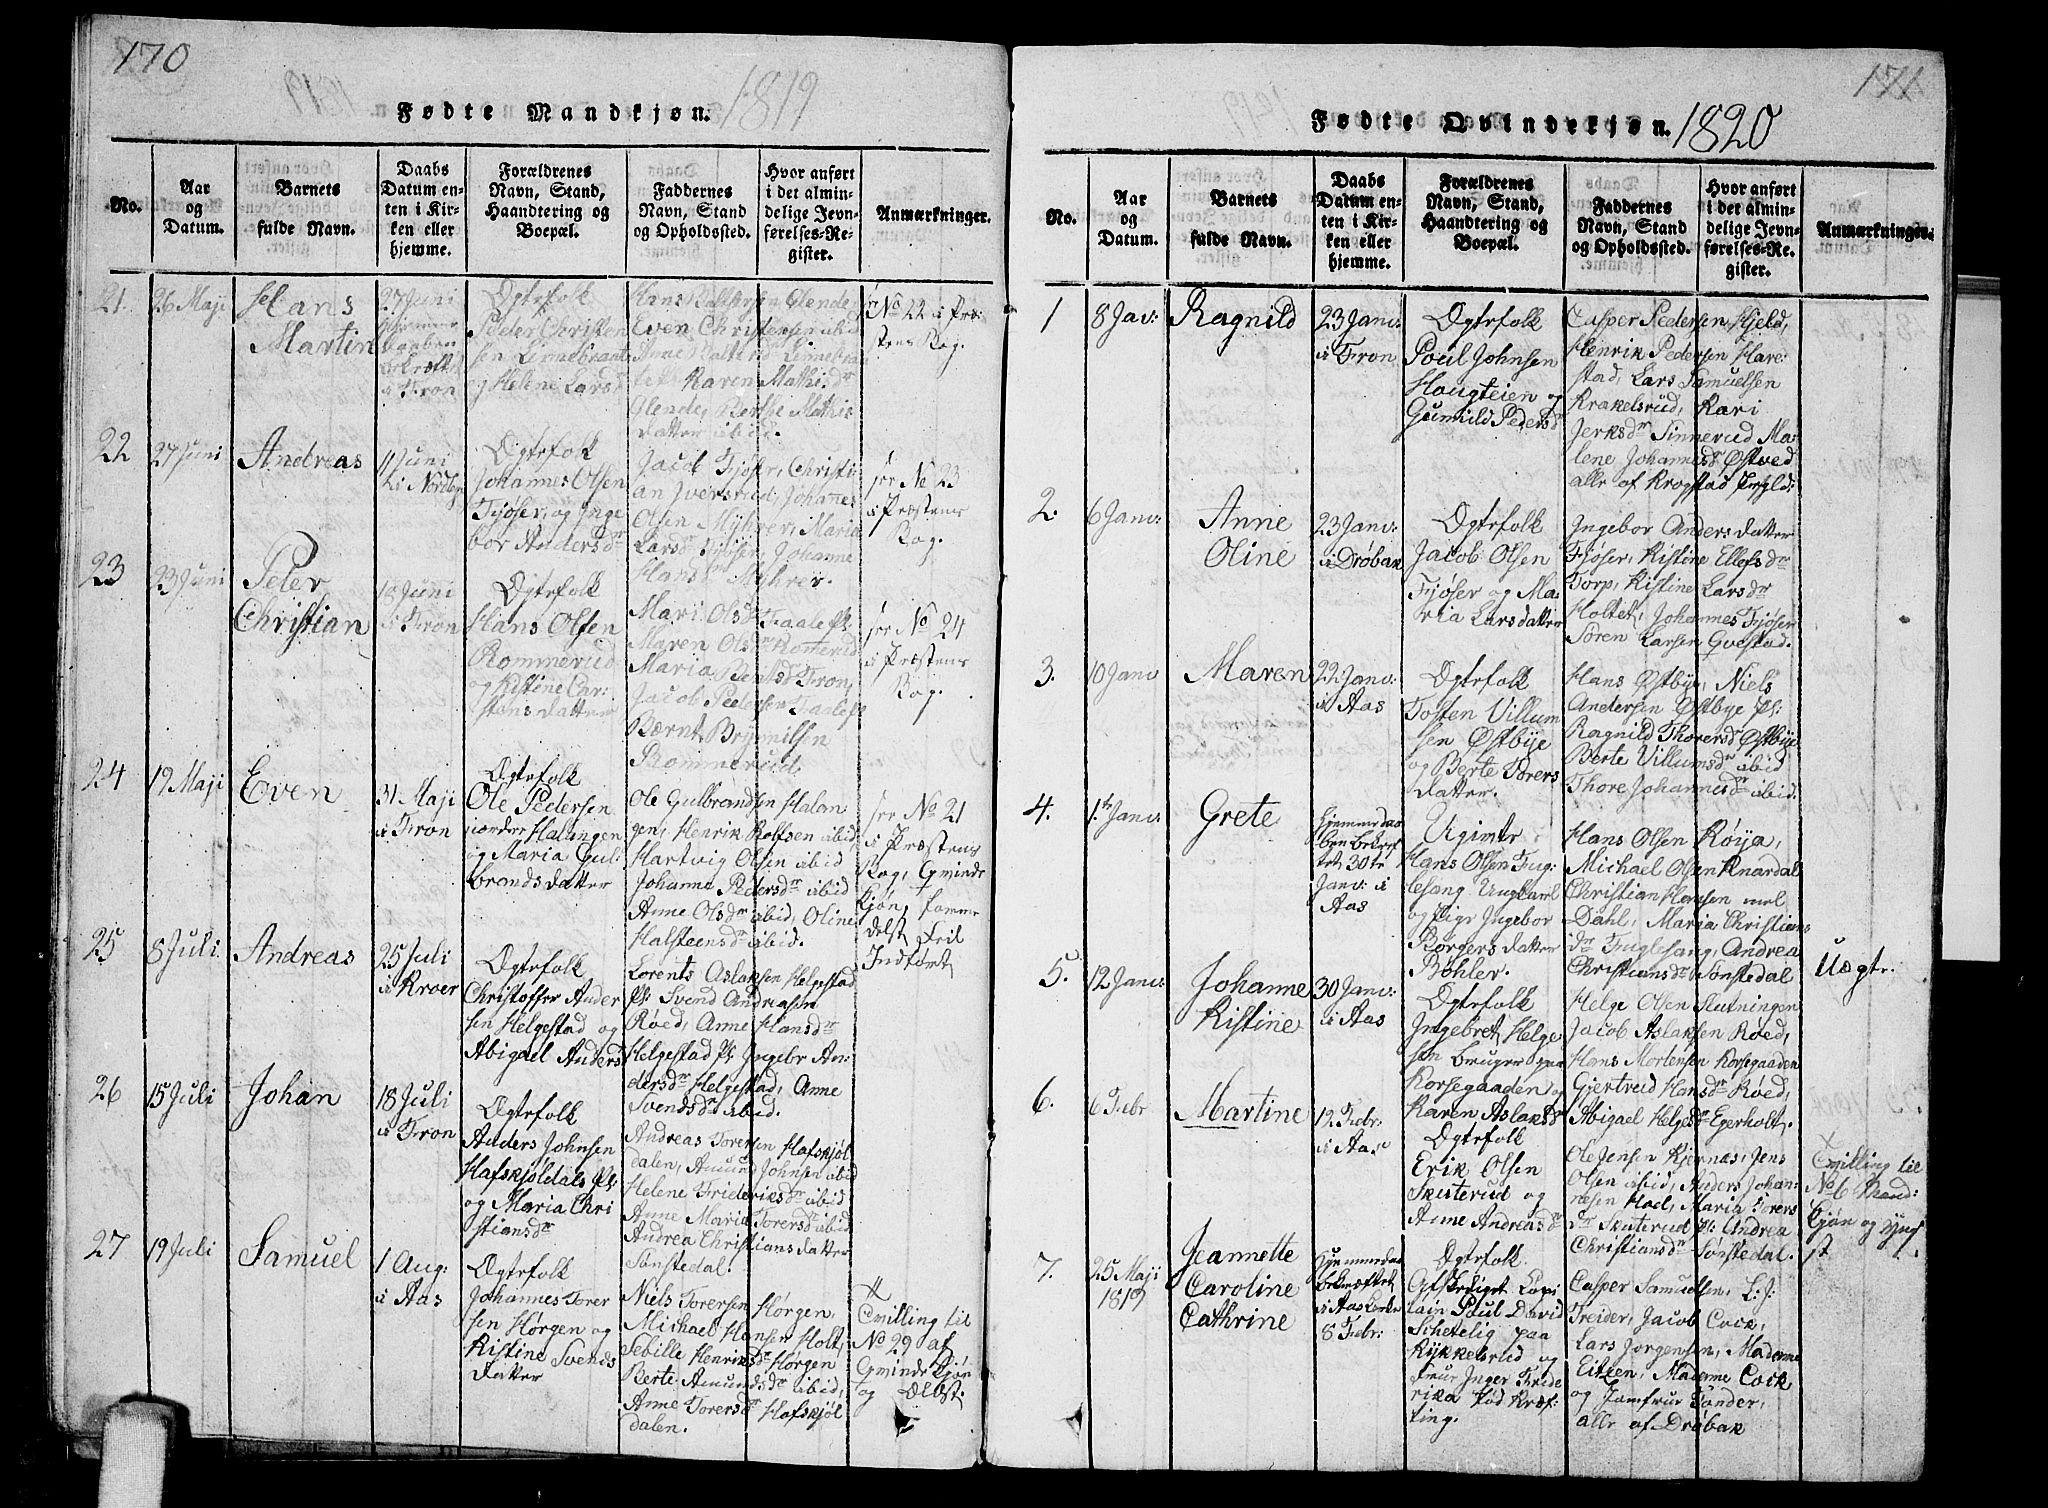 170
1819
Fødte Mandkjøn.
No.
Aar
og
Datum.
Barnets
fulde Navn.
Daabs
Datum en-
ten i Kir-
ken eller
hjemme.
Forældrenes
Navn, Stand,
Haandtering og
Boepæl.
Faddernes
Navn, Stand
og Opholdssted.
Hvor anført
i det almin-
delige Jevn-
førelses-Re-
gister.
Anmærkninger.
21
26 Maji
Hans
Martin
27 Juni
i Fron
Ægtefolk
Peder Christen
sen Linnebrante
og Helene Larsdr
Even Christensen ibid
Karen Mathisdr
Glende, Berthe Mathis
datter ibid.
see No 22 i Præ:
stens Bog.
22
27 Juni
Andreas
11 Juni
i Nordby
Ægtefolk
Johannes Olsen
Fjøser, og Inge
bor Andersdr
Jacob Fjøser, Christi
an Iversrud, Johanes
Olsen Myhrer, Maria
Larsdr Fjøser, Johanne
Hansdr Myhrer.
see No 23
i Præstens
Bog.
23
23 Juni
Peter
Christian
18 Juni
i Fron
Ægtefolk
Hans Olsen
Rommerud
og Kistine Car:
stens datter
Mari Olsdr Taale Pl:
Maren Olsdr Romerud
Maria Bentsdr Fron,
Jacob Pedersen Taale Pl
Bærnt Brynnilsen
Rommerud
see No 24
i Præstens
Bog.
24
19 Maji
Even
31 Maji
i Fron
Ægtefolk
Ole Pedersen
under Halangen
og Maria Gul:
brands datter
Ole Gulbrandsen Halan
gen, Henrik Rolfsen ibid
Hartvig Olsen ibid
Johanne Pedersdr ibid
Anne Olsdr ibid, Oline
Halsteensdr ibid.
see No 21
i Præstens
Bog, Qvinde
Kjøn, samme
delst Feil
Indført
25
8 Juli
Andreas
25 Juli
i Kroer
Ægtefolk
Christoffer Ander
sen Helgestad og
Abigael Anders
Lorents Aslaksen Helgestad
Pl: Svend Andreasen
Røed, Anne Hansdr
Helgestad Pl: Ingebr An:
dersdr Helgestad, Anne
Svendsdr ibid.
26
15 Juli
Johan
18 Juli
i Fron
Ægtefolk
Anders Johnsen
Hafskjøldals Pl:
og Maria Chri
stiansdr
Andreas Torersen Hafskjøl
dalen, Amund Johnsen ibid
Helene Frideriksdr ibid
Anne Maria Torersdr ibid
Andrea Christians datter
Sønstedal.
27
19 Juli
Samuel
1 Aug:
i Aas
Ægtefolk
Johannes Torer
sen Hørgen og
Kistine Svends
datter
Niels Torersen Hørgen,
Michael Hansen Holt,
Sebille Henriksdr Hørgen
Berte Amundsdr ibid,
Anne Torersdr Hafskjøl
dalen.
Tvilling til
No 29 af
Qvindekjøn
og Ældst.
171
Fødte Qvindekjøn. 1820
No.
Aar
og
Datum.
Barnets
fulde Navn.
Daabs
Datum en-
ten i Kir-
ken eller
hjemme.
Forældrenes
Navn, Stand,
Haandtering og
Boepæl.
Faddernes
Navn, Stand
og Opholdssted.
Hvor anført
i det almin-
delige Jevn-
førelses-Re-
gister.
Anmærkninger.
1
8 Jav:
Ragnild
23 Janv:
i Fron
Ægtefolk
Poul Johnsen
Haugteien og
Gunhild Pedersdr
Casper Pedersen Hjeld,
Henrik Pedersen Hare:
stad, Lars Samuelsen
Krakelsrud, Kari
Jerksdr Sinnerud Ma:
lene Johannesdr Østved
alle af Krogstad Præstgld:
2.
6 Janv:
Anne
Oline
23 Janv:
i Drøbak
Ægtefolk
Jacob Olsen
Fjøser og Ma:
ria Larsdatter
Ingebor Anders datter
Fjøser, Kistine Ellefsdr
Torp, Kistine Larsdr
Holtet, Johannes Fjøser
Søren Larsen Qvestad.
3.
10 Janv
Maren
22 Janv:
i Aas
Ægtefolk
Tosten Villum
sen Østbye
og Berte Torers
datter.
Hans Østbye, Niels
Andersen Østbye Pl:
Ragnild Thorersdr Østbye
Berte Villumsdr ibid
Thore Johannesdr ibid.
4.
1te Janv
Grete
Hjemmedaa
ben bekræf
tet 30te
Janv: i
Aas
Ugivte
Hans Olsen Fug:
lesang Ungkarl
og Pige Ingebor
Børgers datter
Bøhler.
Hans Olsen Røiya,
Michael Olsen Knardal
Christian Hansen mel
Dahl, Maria Christians
dr Fuglesang, Andrea
Christiansdr Sønstedal
Uægte.
5.
12 Janv:
Johanne
Kistine
30 Janv:
i Aas
Ægtefolk
Ingebret Helge
sen bruger paa
Korsegaaden og
Karen Aslaksdr
Helge Olsen Slutningen
Jacob Aslaksen Røed,
Hans Mortensen Korsegaaden
Gjertrud Hansdr Røed,
Abigael Helgesdr Egerholt.
6.
6 Febr
Martine
12 Febr:
i Aas
Ægtefolk
Erik Olsen
Skuterud og
Anne Andreasdr
Ole Jensen Kjernæs, Jens
Olsen ibid, Anders Johan-
nesen Hael, Maria Torers
dr Skuterud Pl: Andrea
Christiansdr Sønstedal.
Tvilling til
No 6 Mand:
Kjøn og Yng
st
7.
25 Maji
1819
Jeannette
Caroline
Cathrine
Hjemmedaab
bekræftet
i Aas Kirke
8 Febr:
Ægtefolk
Afskediget Capi
tain Poul David
Schetelig paa
Rykkelsrud og
Frue Inger Fride
rika fød Kræf
ting.
Casper Samuelsen, L: J:
Treider, Jacob Cock,
Lars Jorgensen, Madame
Eitzen, Madame Cock
og Jomfrue Tønder,
alle af Drøbak